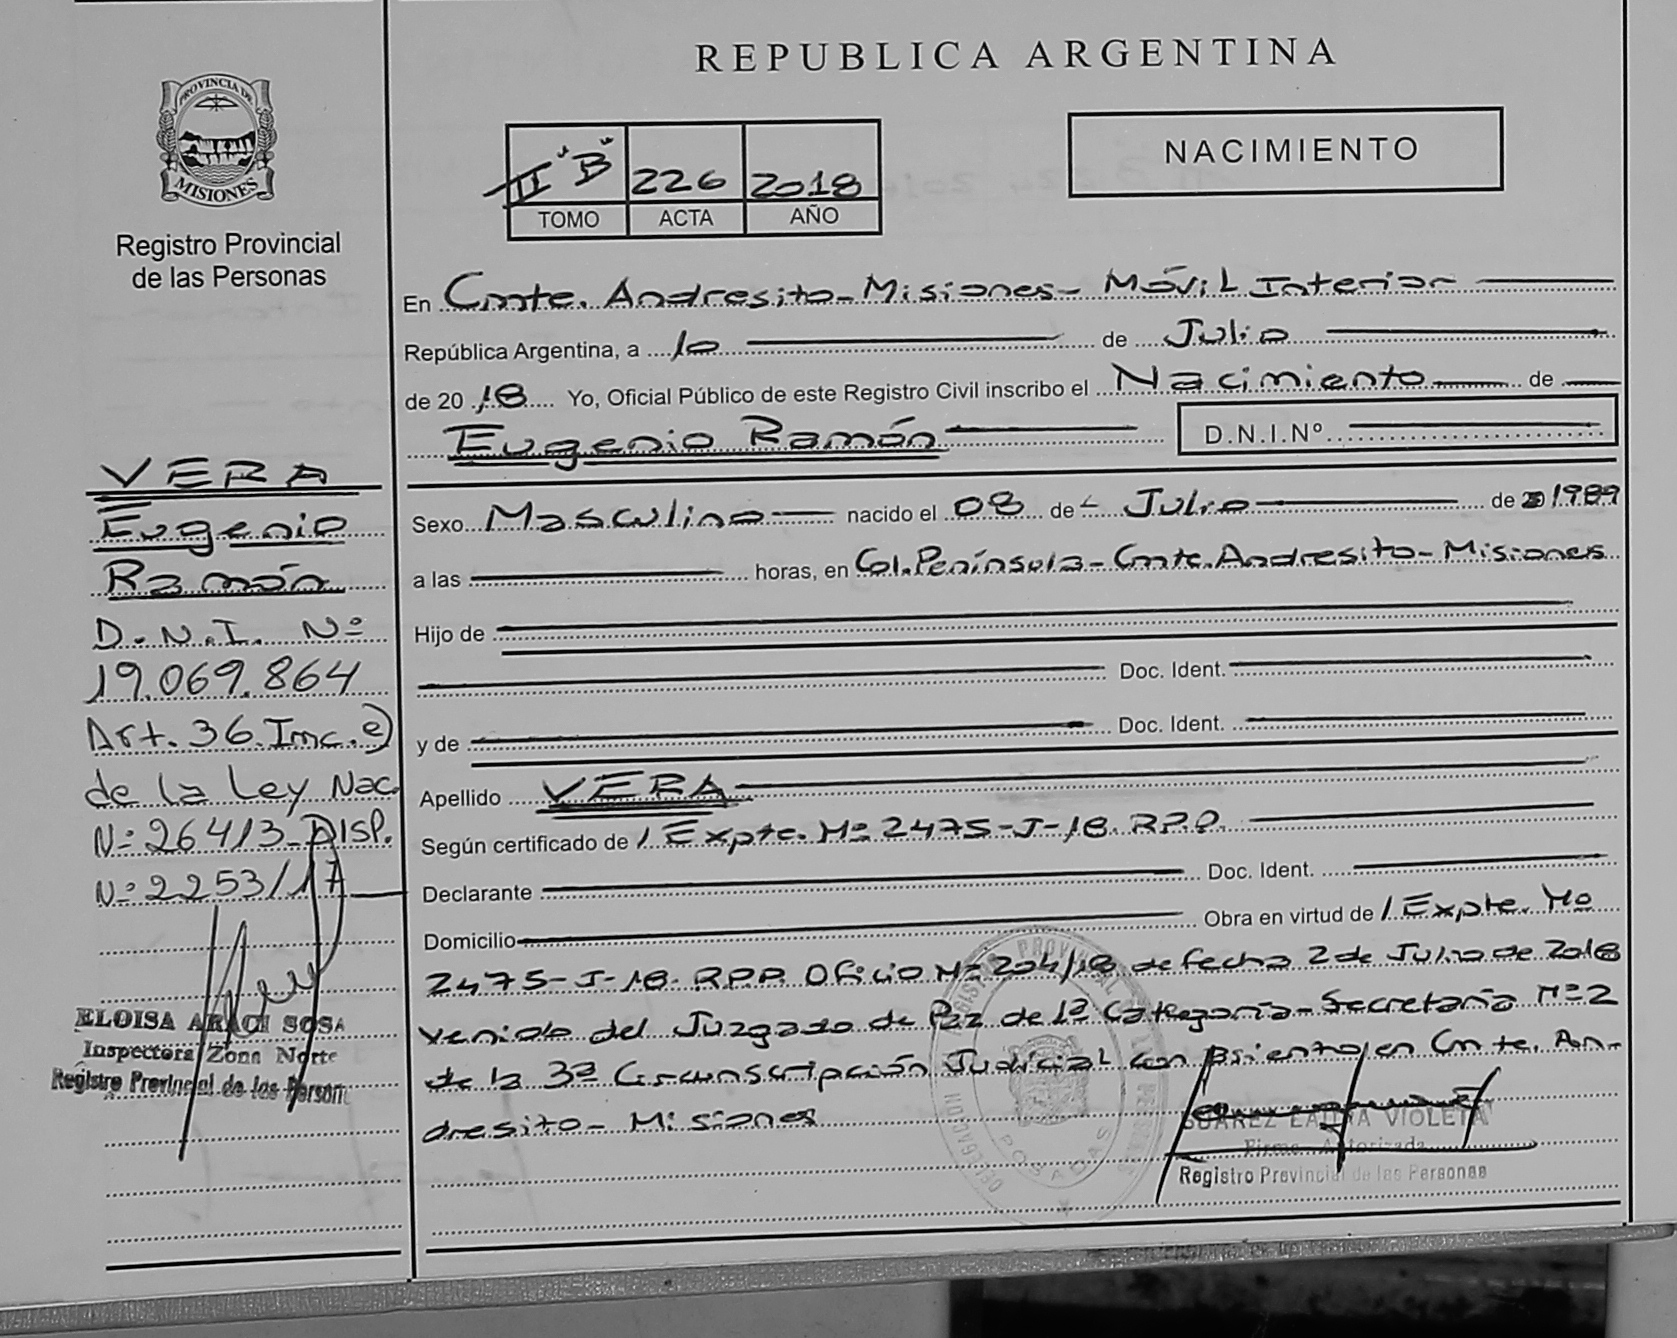 PROVINCIA DE
MISIONES
Registro Provincial
de las Personas
VERA
Eugenio
Ramón
D.N.I. Nº
19.069.864
Art. 36 Inc. e)
de la Ley Nac.
Nº 26413 - DISP.
Nº 2253/17
ELOISA ARACI SOSA
Inspectora Zona Norte
Registro Provincial de las Person
REPUBLICA ARGENTINA
II "B" 226 2018
TOMO ACTA AÑO
NACIMIENTO
En Cmte. Andresito - Misiones - Móvil Interior
República Argentina, a 10 de Julio
de 2018 Yo, Oficial Público de este Registro Civil inscribo el Nacimiento de
Eugenio Ramón D.N.I.Nº
Sexo Masculino nacido el 08 de Julio de 1989
a las horas, en Col. Península - Cmte. Andresito - Misiones
Hijo de
Doc. Ident.
y de Doc. Ident.
Apellido VERA
Según certificado de / Expte. Nº 2475-J-18. R.P.P.
Declarante Doc. Ident.
Domicilio Obra en virtud de / Expte. Nº
2475-J-18. R.P.P. Oficio Nº 204/18 de fecha 2 de Julio de 2018
venido del Juzgado de Paz de 1ª Categoría - Secretaría Nº 2
de la 3ª Circunscripción Judicial con asiento en Cmte. An-
dresito - Misiones
SUAREZ LAURA VIOLETA
Firma Autorizada
Registro Provincial de las Personas
POSADAS